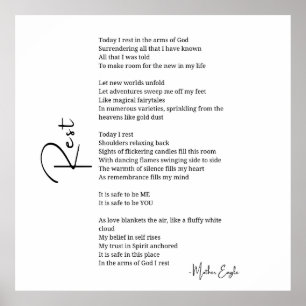 Rest
Today I rest in the arms of God
Surrendering all that i have known
All that I was told
To make room for the new in my life
Let new worlds unfold
Let adventures sweep me off my feet
Like magical fairytales
In numerous varieties, sprinkling from the
heavens like gold dust
Today I rest
Shoulders relaxing back
Sights of flickering candles fill this room
With dancing flames swinging side to side
The warmth of silence fills my heart
As remembrance fills my mind
It is safe to be ME
It is safe to be YOU
As love blankets the air, like a fluffy white
cloud
My belief in self rises
My trust in Spirit anchored
It is safe in this place
In the arms of God I rest
-Mother Eagle